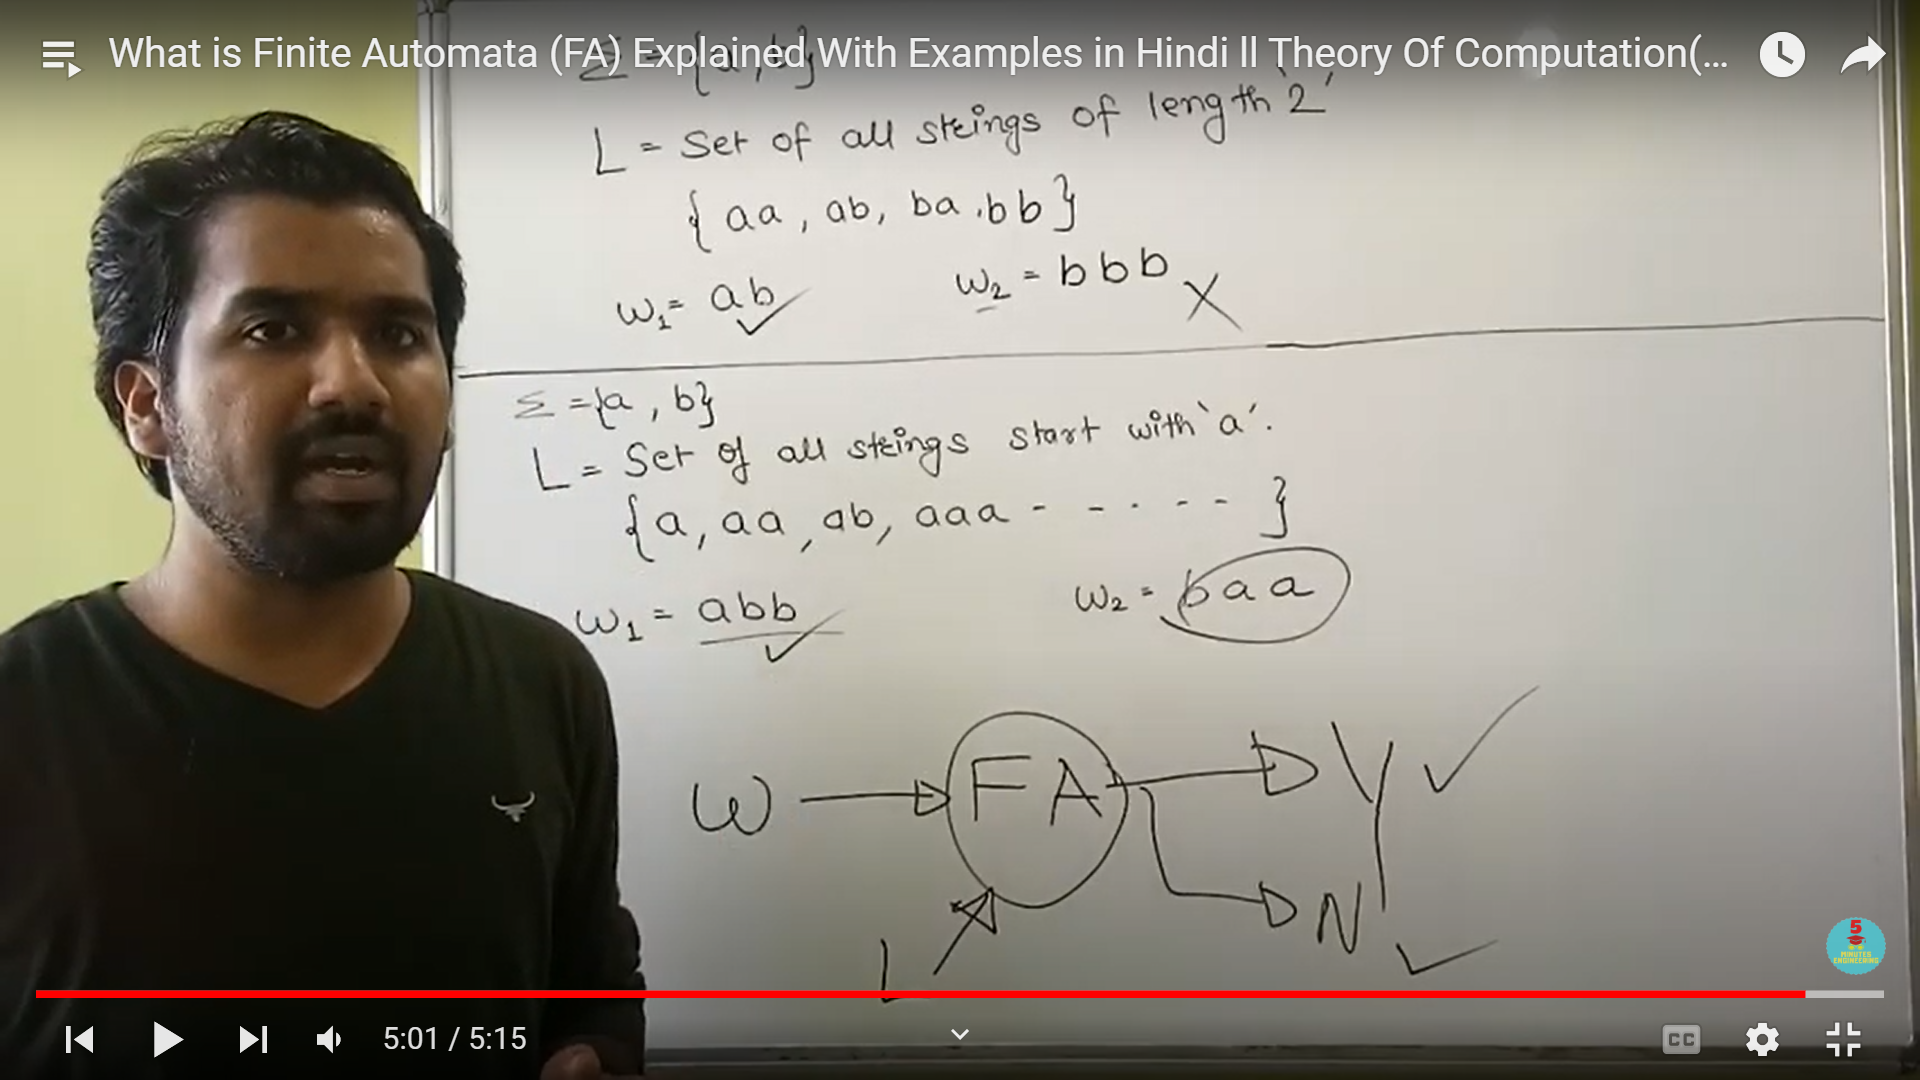 What is Finite Automata (FA) Explained With Examples in Hindi ll Theory Of Computation(...
Σ = {a,b}
L = Set of all strings of length '2'
{ aa , ab, ba , bb }
W1 = ab ✓ W2 = bbb X
Σ = {a , b}
L = Set of all strings start with 'a'.
{a, aa, ab, aaa - - - - - }
W1 = abb ✓ W2 = baa
W FA Y ✓
N ✓
L
5 MINUTES ENGINEERING
5:01 / 5:15
CC